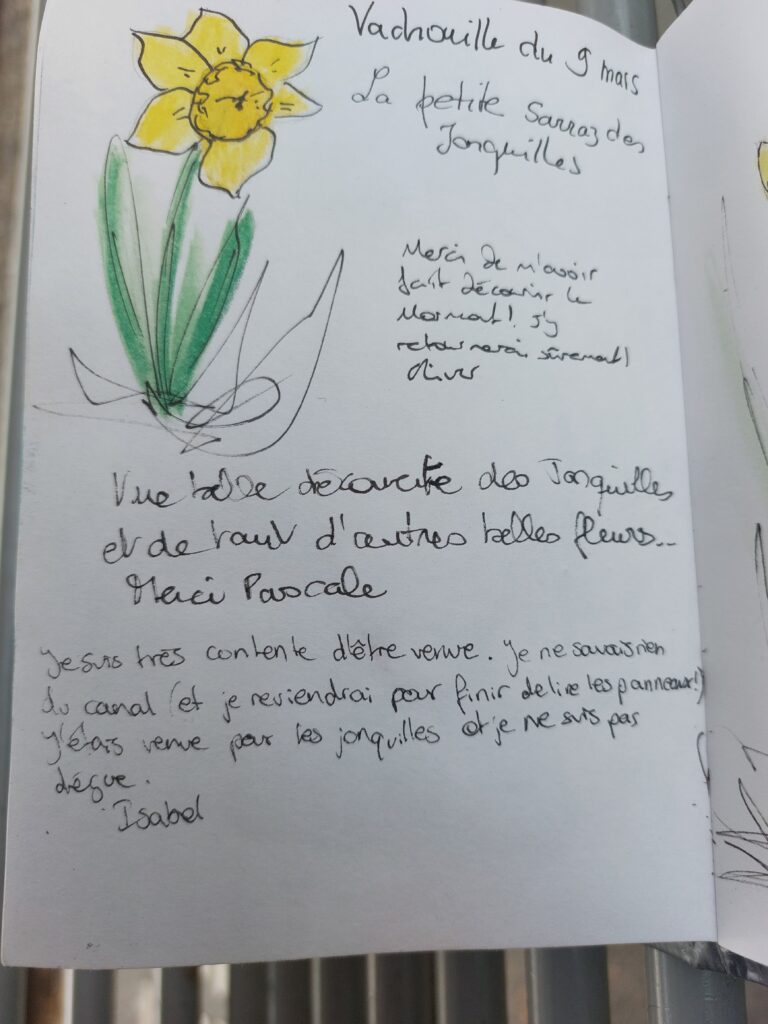 Vadrouille du 9 mars
La petite Sarraz des
Jonquilles
Merci de m'avoir
fait découvrir le
Mormont! J'y
retournerai sûrement!
Oliver
Une belle découverte des Jonquilles
et de tant d'autres belles fleurs...
Merci Pascale
Je suis très contente d'être venue. Je ne savais rien
du canal (et je reviendrai pour finir de lire les panneaux!)
J'étais venue pour les jonquilles et je ne suis pas
déçue.
Isabel